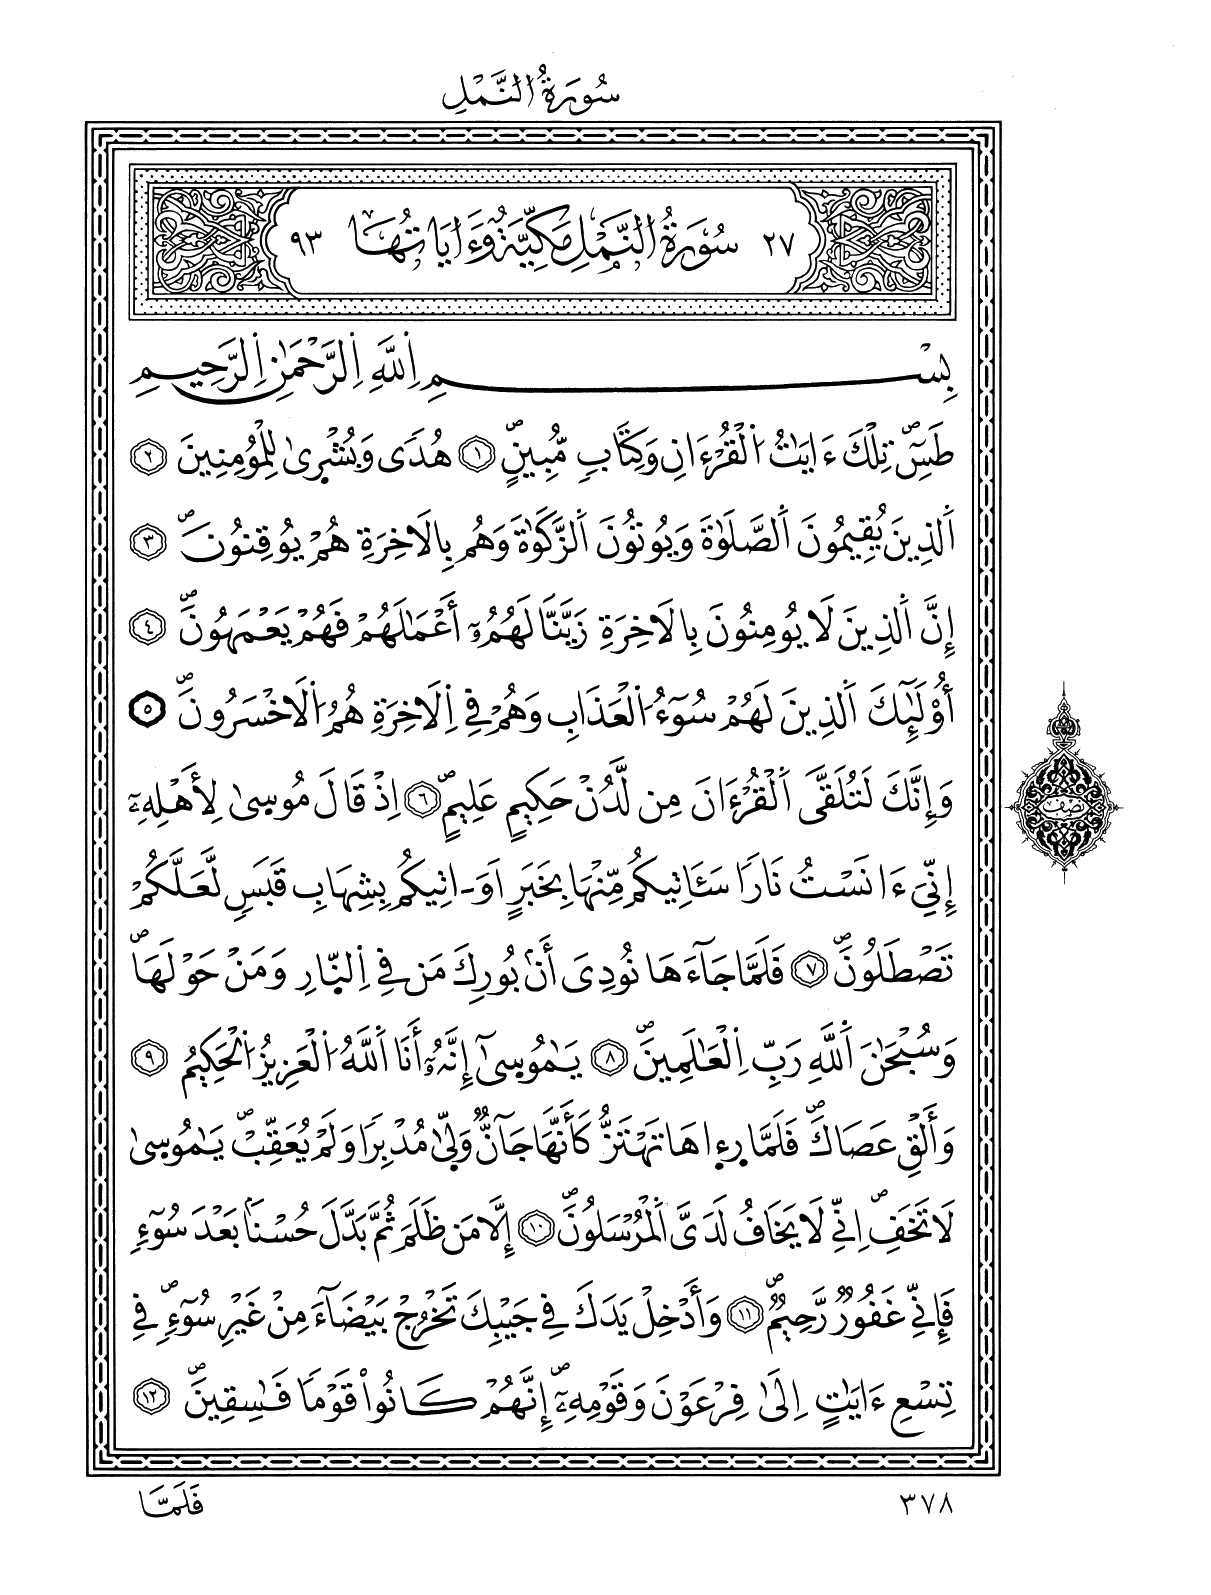 سُورَةُ النَّمْلِ
٢٧ سُورَةُ النَّمْلِ مَكِّيَّةٌ وَءَايَاتُهَا ٩٣
بِسْمِ اِللَّهِ اِلرَّحْمَٰنِ اِلرَّحِيمِ
طَسِٓۖ تِلْكَ ءَايَٰتُ اُلْقُرْءَانِ وَكِتَابٖ مُّبِينٍۖ ١ هُدىٗ وَبُشْرىٰ لِلْمُومِنِينَ ٢
اَلذِينَ يُقِيمُونَ اَلصَّلَوٰةَ وَيُوتُونَ اَلزَّكَوٰةَ وَهُم بِالَاخِرَةِ هُمْ يُوقِنُونَۖ ٣
إِنَّ اَلذِينَ لَا يُومِنُونَ بِالَاخِرَةِ زَيَّنَّا لَهُمُۥٓ أَعْمَٰلَهُمْ فَهُمْ يَعْمَهُونَۖ ٤
أُوْلَٰٓئِكَ اَلذِينَ لَهُمْ سُوٓءُ اُلْعَذَابِ وَهُمْ فِي اِلَاخِرَةِ هُمُ اُلَاخْسَرُونَۖ ٥
وَإِنَّكَ لَتُلَقَّى اَلْقُرْءَانَ مِن لَّدُنْ حَكِيمٍ عَلِيمٍۖ ٦ اِذْ قَالَ مُوسىٰ لِأَهْلِهِۦٓ
إِنِّيَ ءَانَسْتُ نَاراٗ سَـَٔاتِيكُم مِّنْهَا بِخَبَرٍ اَوَ اٰتِيكُم بِشِهَابِ قَبَسٖ لَّعَلَّكُمْ
تَصْطَلُونَۖ ٧ فَلَمَّا جَآءَهَا نُودِيَ أَنۢ بُورِكَ مَن فِي اِلنّارِ وَمَنْ حَوْلَهَاۖ
وَسُبْحَٰنَ اَللَّهِ رَبِّ اِلْعَٰلَمِينَۖ ٨ يَٰمُوسىٰٓ إِنَّهُۥٓ أَنَا اَللَّهُ اُلْعَزِيزُ اُلْحَكِيمُ ٩
وَأَلْقِ عَصَاكَۖ فَلَمَّا رءِاهَا تَهْتَزُّ كَأَنَّهَا جَآنّٞ وَلّىٰ مُدْبِراٗ وَلَمْ يُعَقِّبْۖ يَٰمُوسىٰ
لَا تَخَفِۖ اِنِّي لَا يَخَافُ لَدَيَّ اَلْمُرْسَلُونَۖ ١٠ إِلَّا مَن ظَلَمَ ثُمَّ بَدَّلَ حُسْناَۢ بَعْدَ سُوٓءٖ
فَإِنِّي غَفُورٞ رَّحِيمٞۖ ١١ وَأَدْخِلْ يَدَكَ فِي جَيْبِكَ تَخْرُجْ بَيْضَآءَ مِنْ غَيْرِ سُوٓءٖۖ فِي
تِسْعِ ءَايَٰتٍ اِلَىٰ فِرْعَوْنَ وَقَوْمِهِۦٓۖ إِنَّهُمْ كَانُواْ قَوْماٗ فَٰسِقِينَۖ ١٢
نصف
٣٧٨
فَلَمَّا